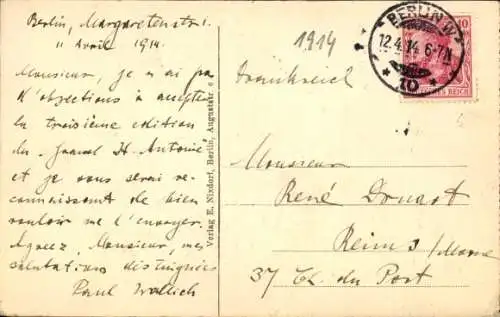 Berlin, Margaretenstr. 1.
11 Avril 1914.
Monsieur, je n'ai pas
d'objections à accepter
la troisième édition
du "Grand St Antoine"
et je vous serai re-
connaissant de bien
vouloir me l'envoyer.
Agreez, Monsieur, mes
salutations distinguées
Paul Wallich
Verlag E. Nixdorf, Berlin, Auguststr.
1914
BERLIN W
12.4.14. 6-7 N
10
10
REICH
Frankreich
Monsieur
René Druart
Reims / Marne
37 du Port